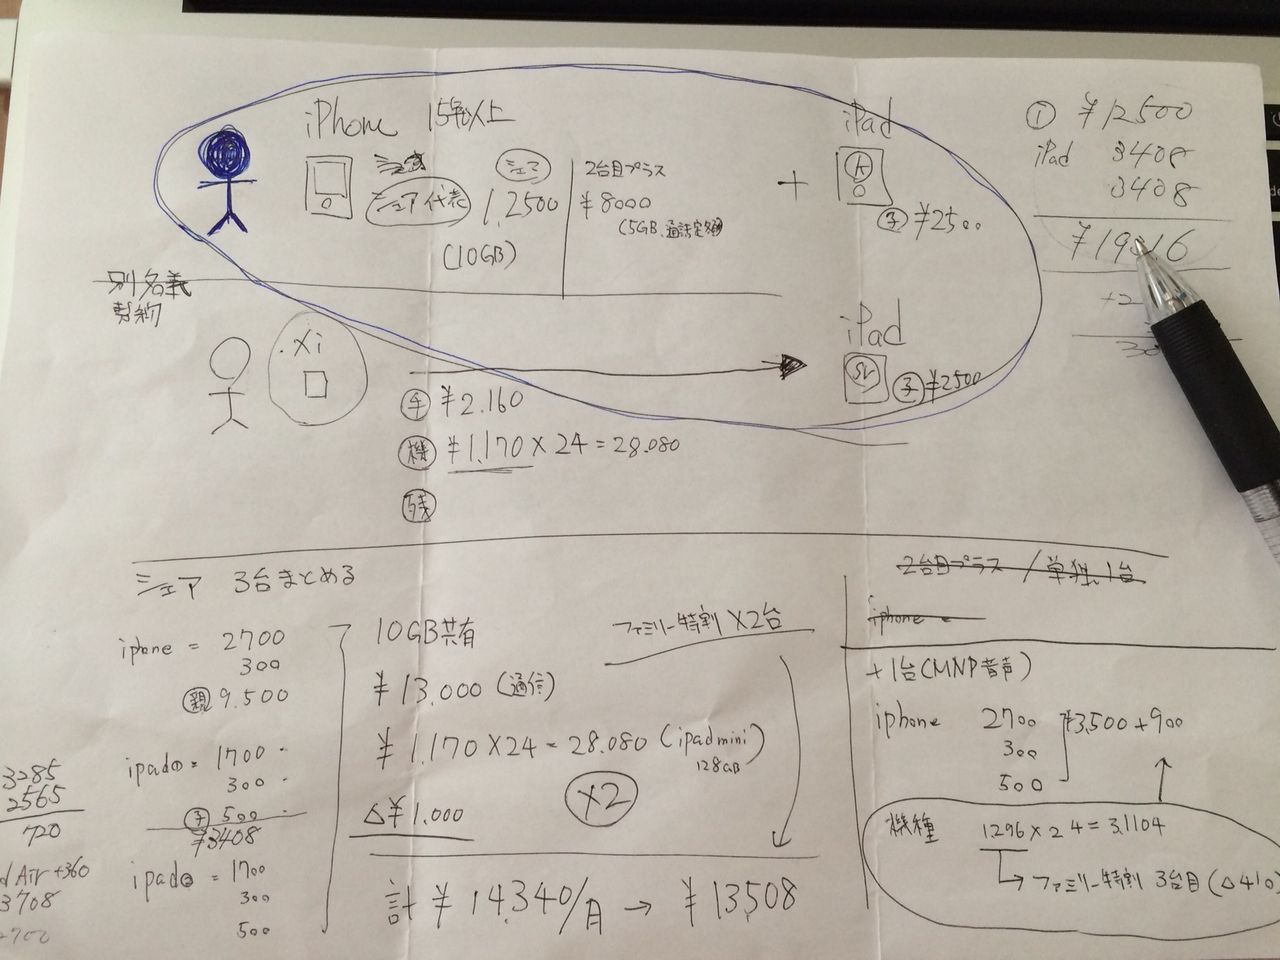 iPhone 15歳以上
シェア
シェア代表 1,2500
(10GB)
2台目プラス
¥8000
(5GB、通話定額)
+
iPad
子 ¥2500
① ¥12500
iPad 3408
3408
¥19316
別名義
契約
.Xi
iPad
子 ¥2500
手 ¥2.160
機 ¥1,170×24=28.080
残
シェア 3台まとめる
ipone = 2700
300
親 9.500
ipad① = 1700
300
子 500
¥3408
ipad② = 1700
300
500
3285
2565
720
d Air +360
3708
10GB共有
ファミリー特割 ×2台
¥13,000 (通信)
¥1,170×24=28.080 (ipad mini)
128GB
×2
△¥1.000
計 ¥14,340/月 → ¥13,508
2台目プラス / 単独1台
iphone =
+1台(MNP音声)
iphone 2700
300
500
¥3,500+900
機種 1296×24=3,1104
ファミリー特割 3台目(△410)